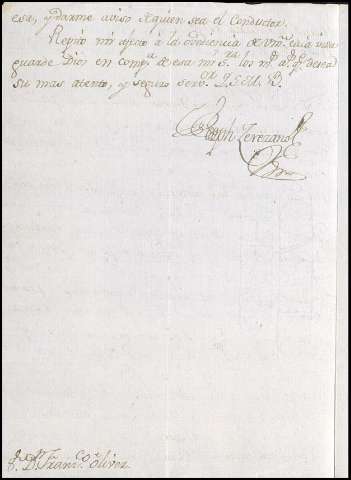 esa, y darme aviso de quien sea el Conductor.
Repito mi afecto á la obediencia de Vm. cuia vida
guarde Dios en comp.a de esa mi S.ra los m.s a.s q.e desea
su mas atento, y seguro serv.or Q.S.M.B.
Joseph Terezano
S.r D.n Franz.co Oliver